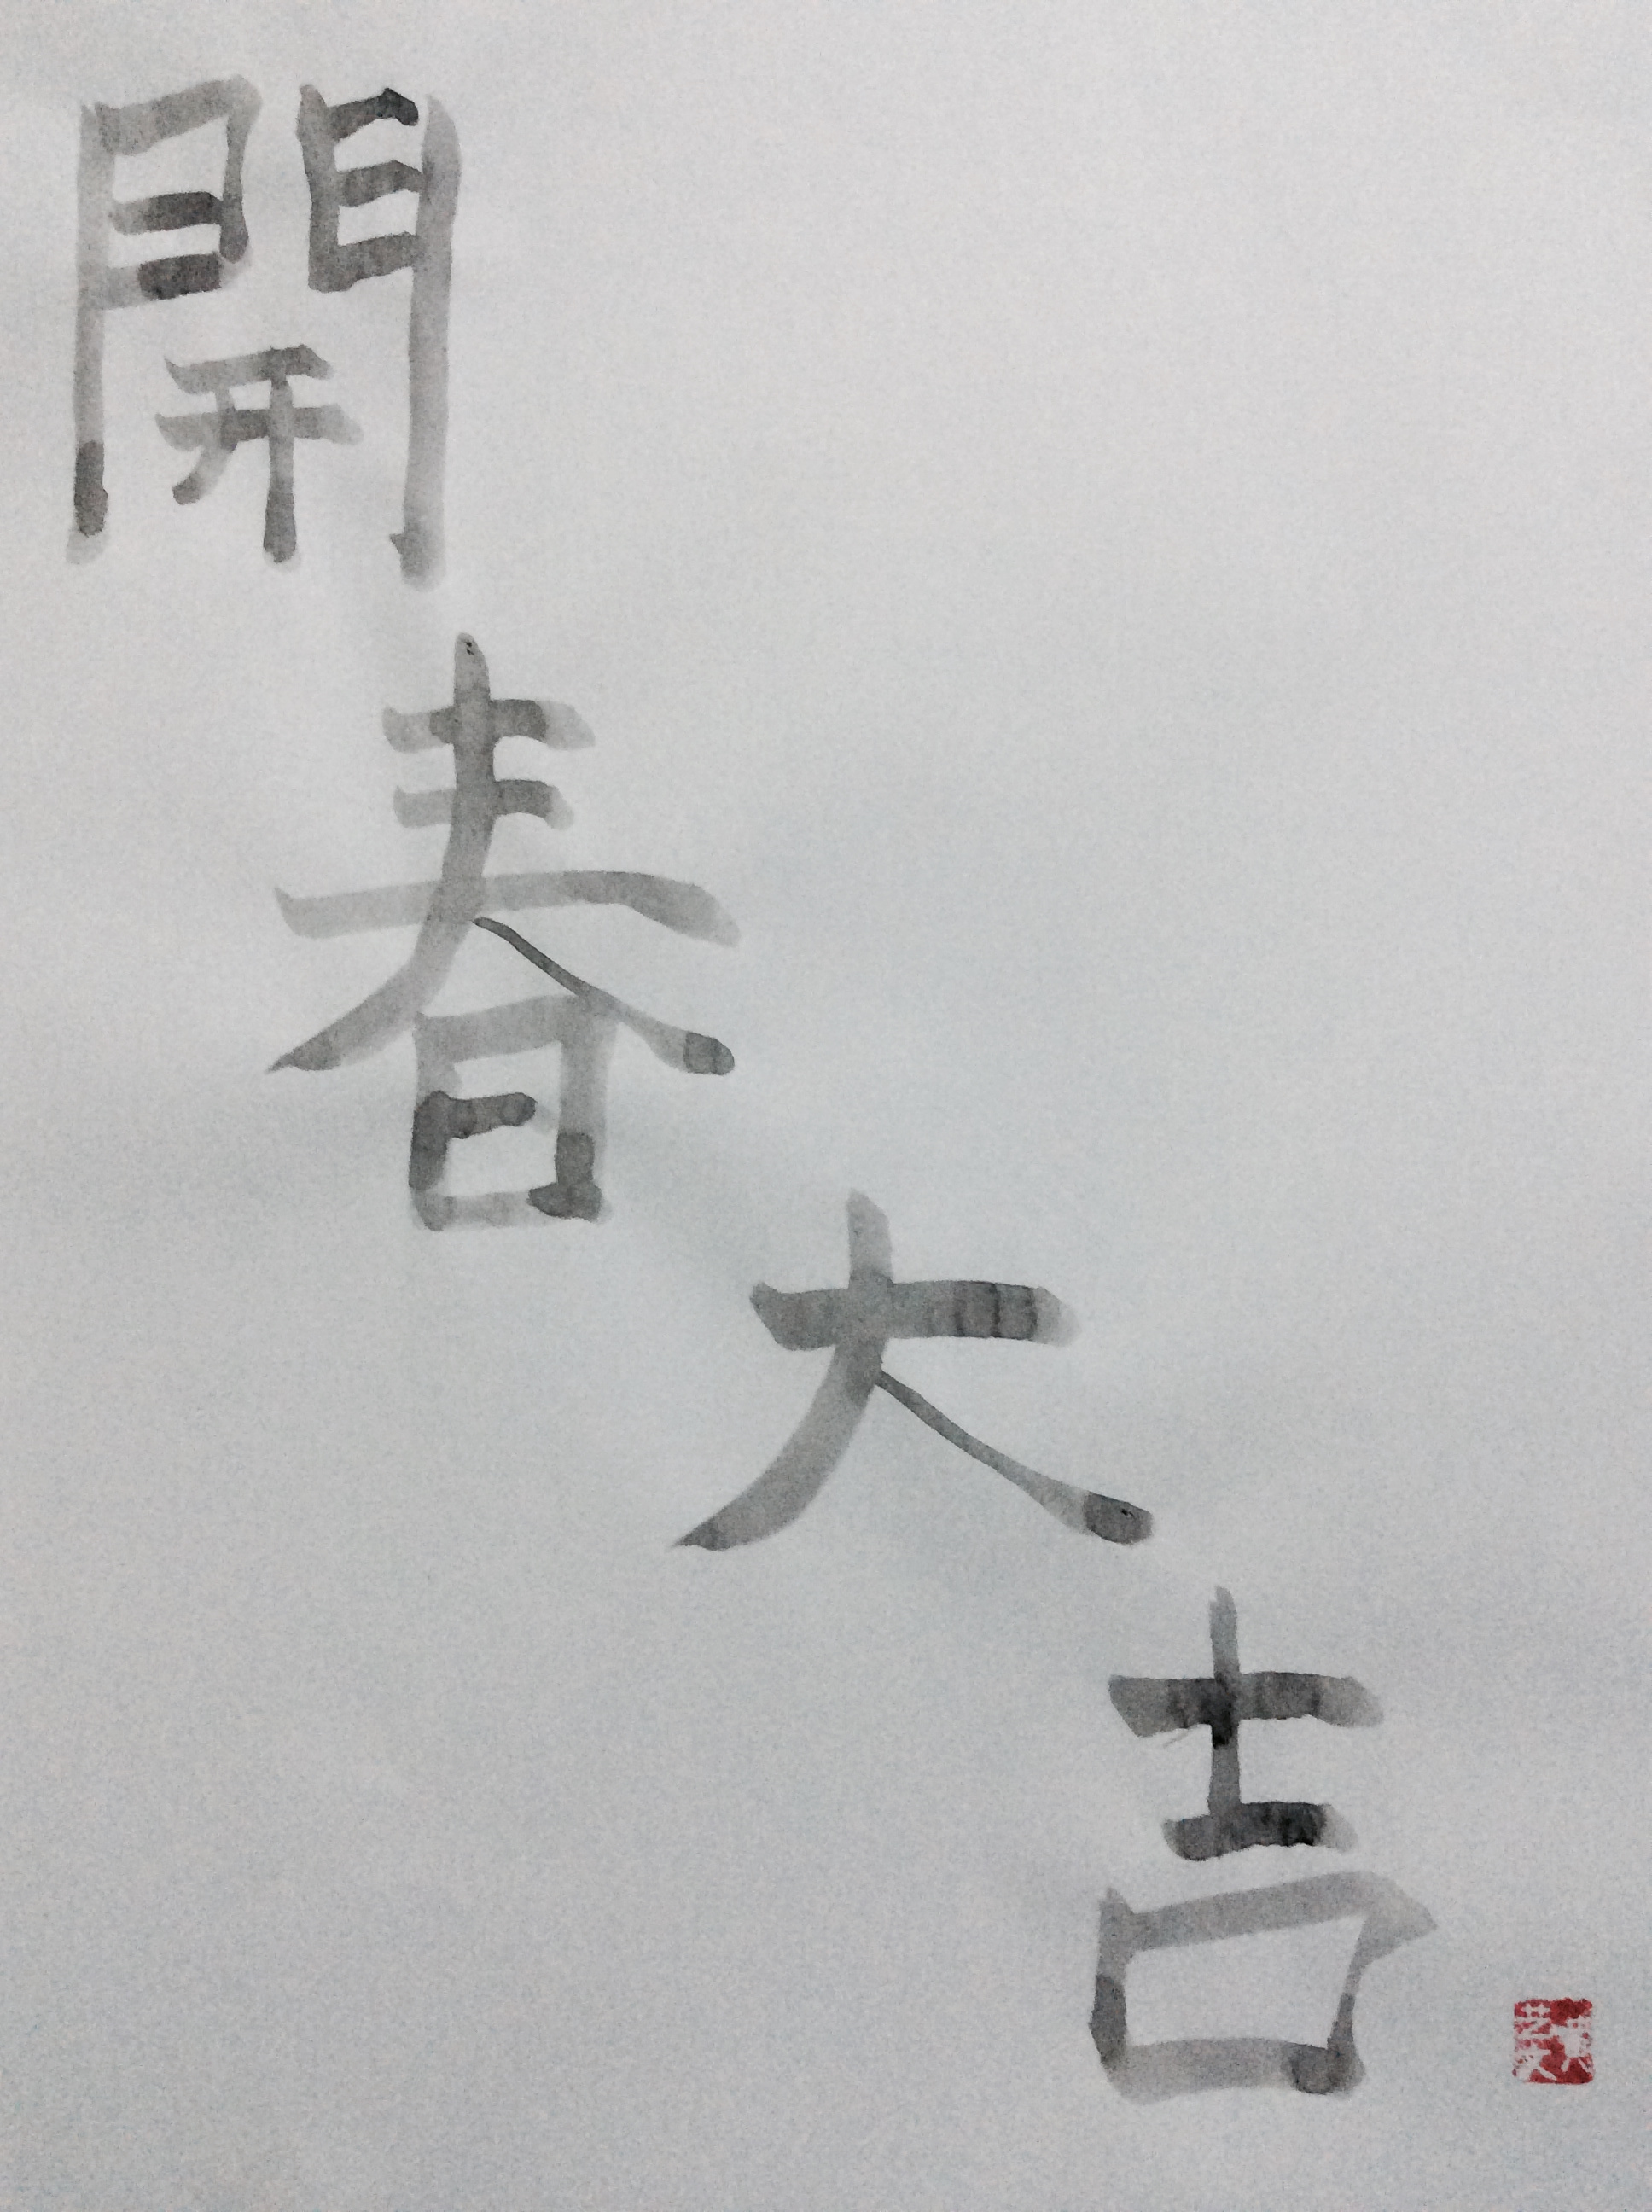 開
春
大
吉